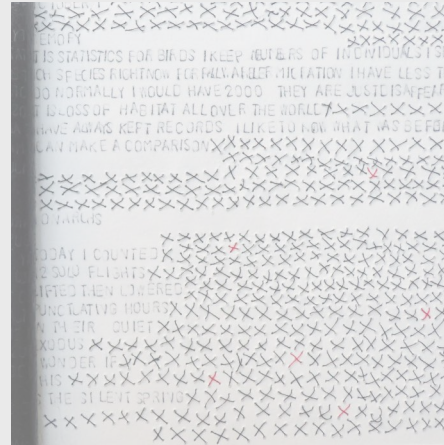 EMORY
T IS STATISTICS FOR BIRDS I KEEP NUMBERS OF INDIVIDUALS
CH SPECIES RIGHT NOW FOR I HAVE LESS T
DO NORMALLY I WOULD HAVE 2000 THEY ARE JUST
LOSS OF HABITAT ALL OVER THE WORLD
HAVE ALWAYS KEPT RECORDS I LIKE TO WHAT WAS BEFO
CAN MAKE A COMPARISON
ODAY I COUNTED
2 SOLO FLIGHTS
LIFTED THEN LOWERED
PUNCTUATING HOURS
N THEIR QUIET
XODUS
WONDER IF
HIS
S THE SILENT SPRING